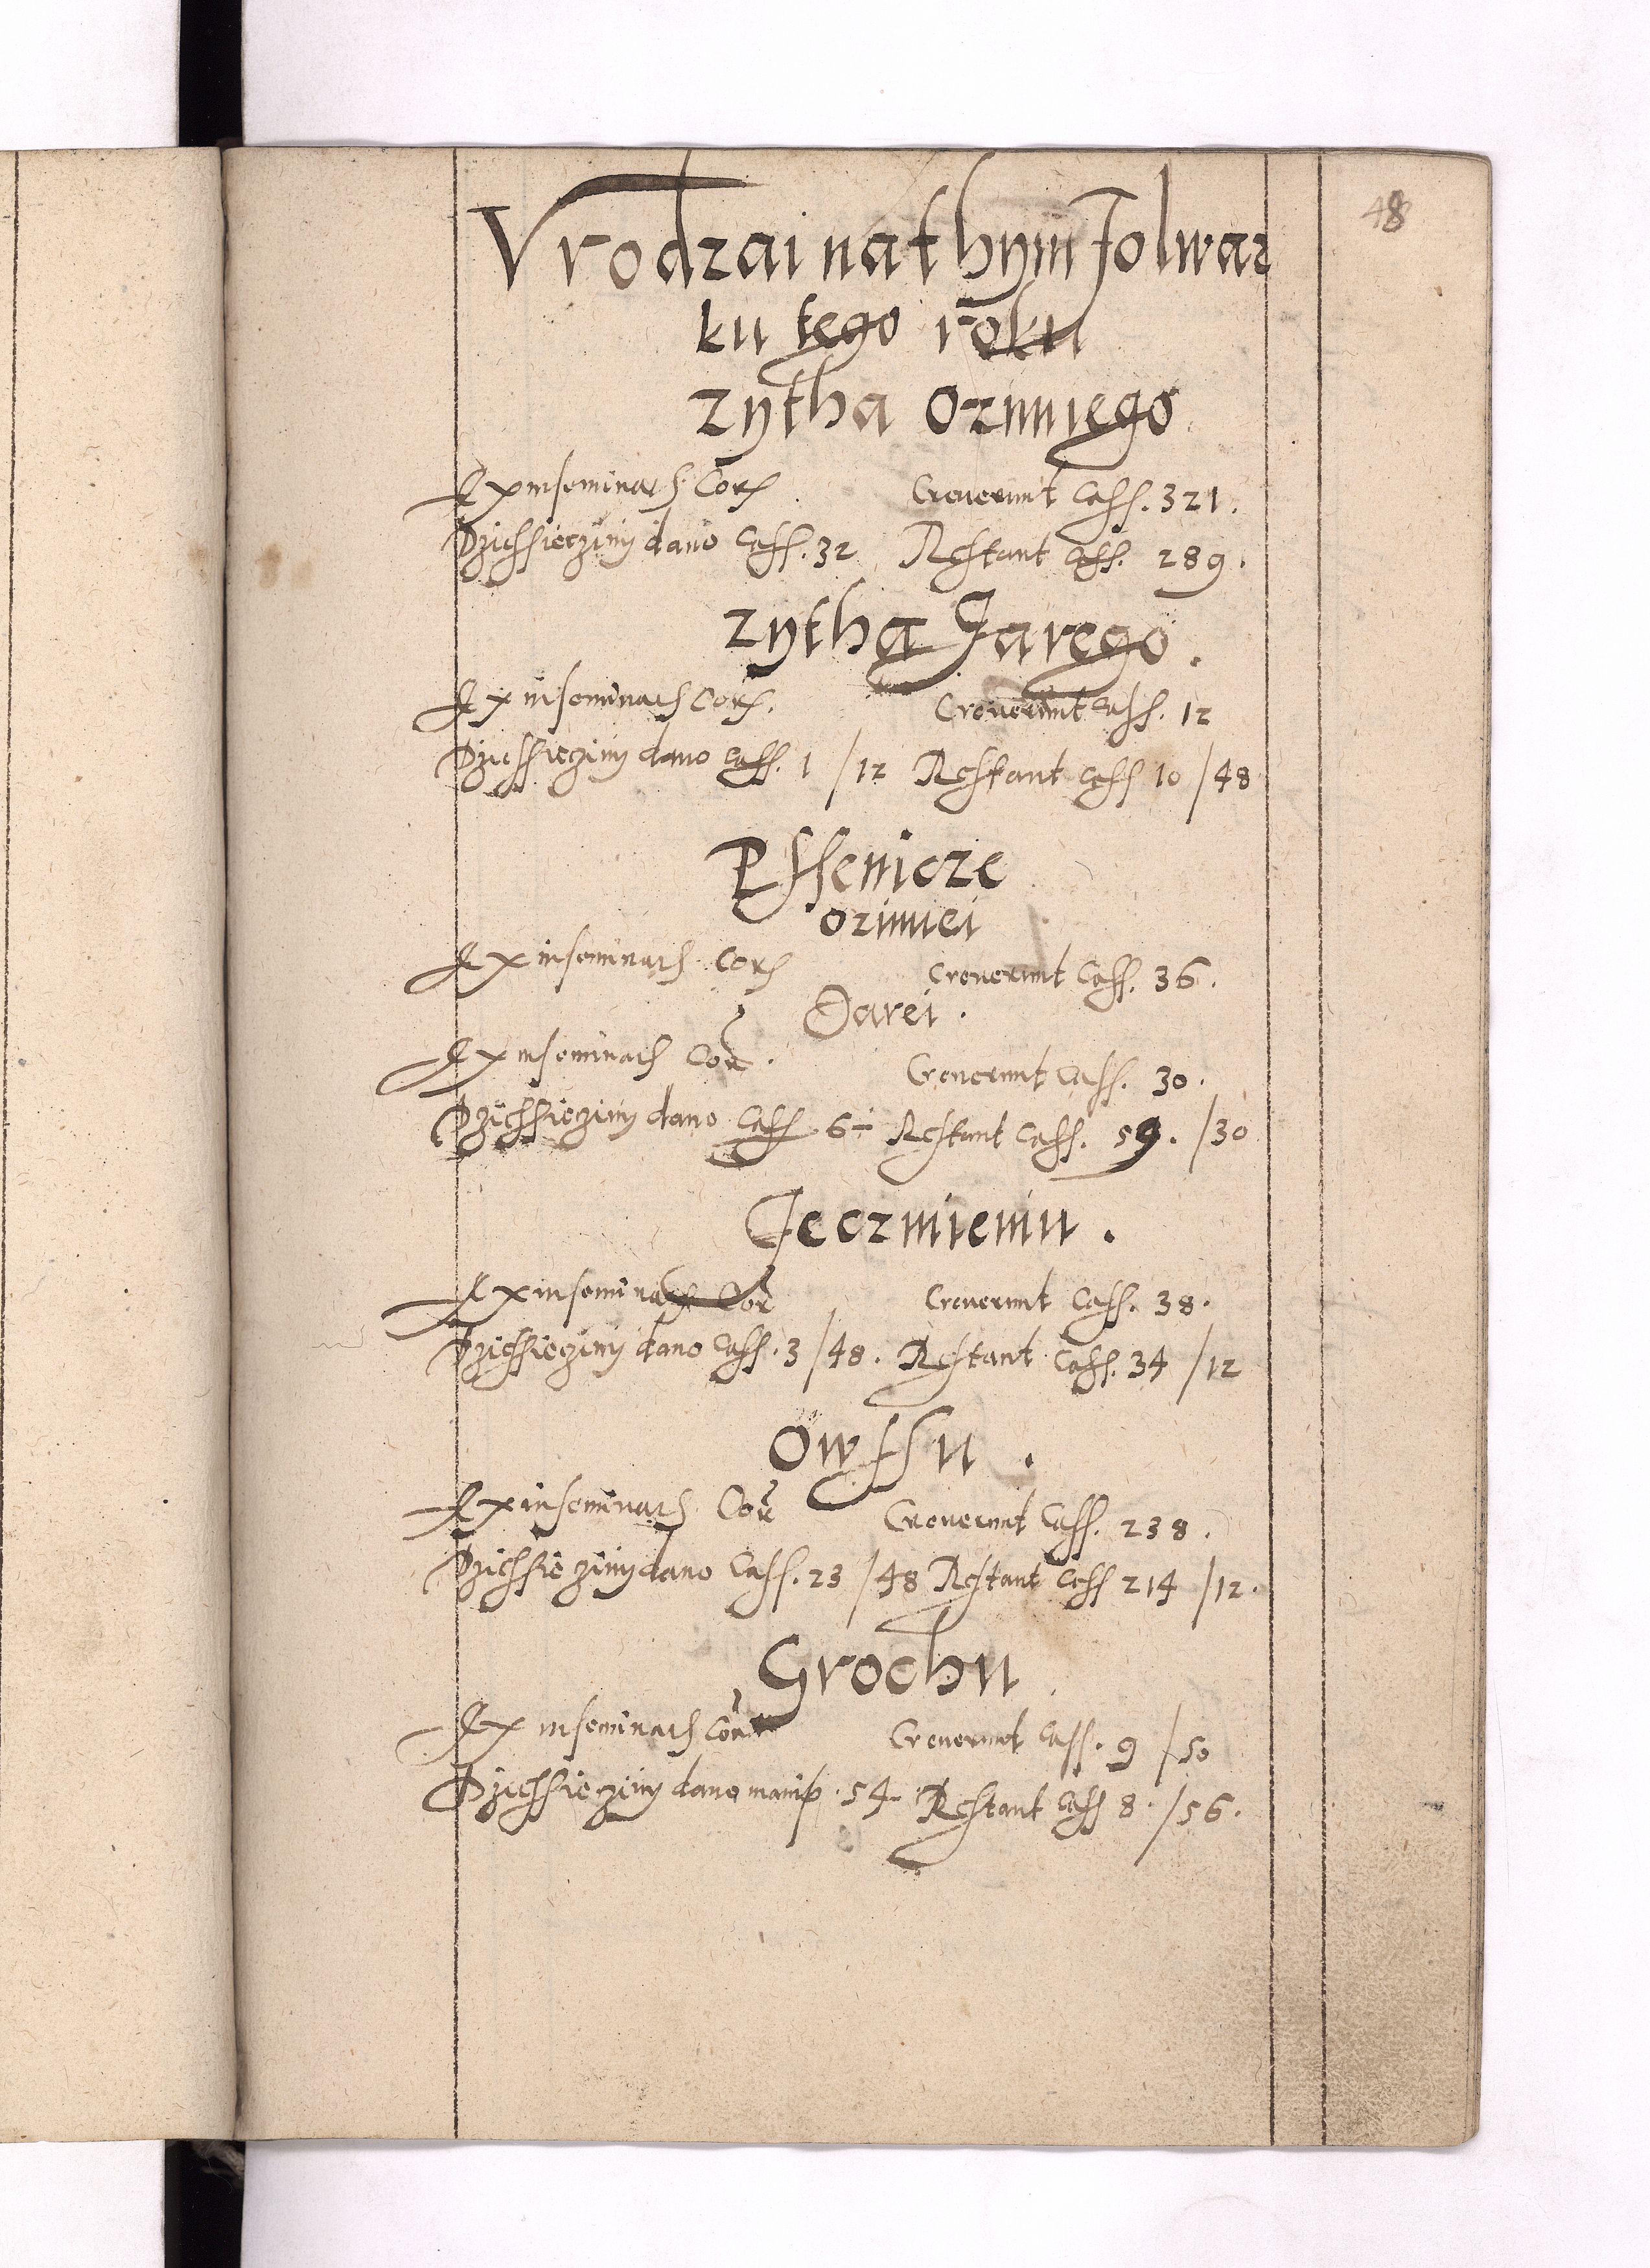 48
Vrodzai na thym folwar
ku tego roku
zytha ozimiego
Ex inseminatis Cor. Creuerunt Cass. 321.
Dziessiecziny dano Cass. 32 Restant Cass. 289.
zytha Jarego.
Ex inseminatis Cor. Creuerunt Cass. 12
Dziessiecziny dano Cass. 1 /12 Restant Cass 10 /48
Pssenicze
ozimiei
Ex inseminatis Cor. Creuerunt Cass. 36.
Jarei.
Ex inseminatis Cor. Creuerunt Cass. 30.
Dziessiecziny dano Cass 6÷ Restant Cass. 59. /30
Jeczmieniu.
Ex inseminatis Cor Creuerunt Cass. 38.
Dziessiecziny dano Cass. 3 /48. Restant Cass. 34 /12
Owssu.
Ex inseminatis Cor Creuerunt Cass. 238.
Dziessiecziny dano Cass. 23 /48 Restant Cass 214 /12.
Grochu
Ex inseminatis Cor Creuerunt Cass. 9 /50
Dziessiecziny dano manip. 54. Restant Cass 8. /56.